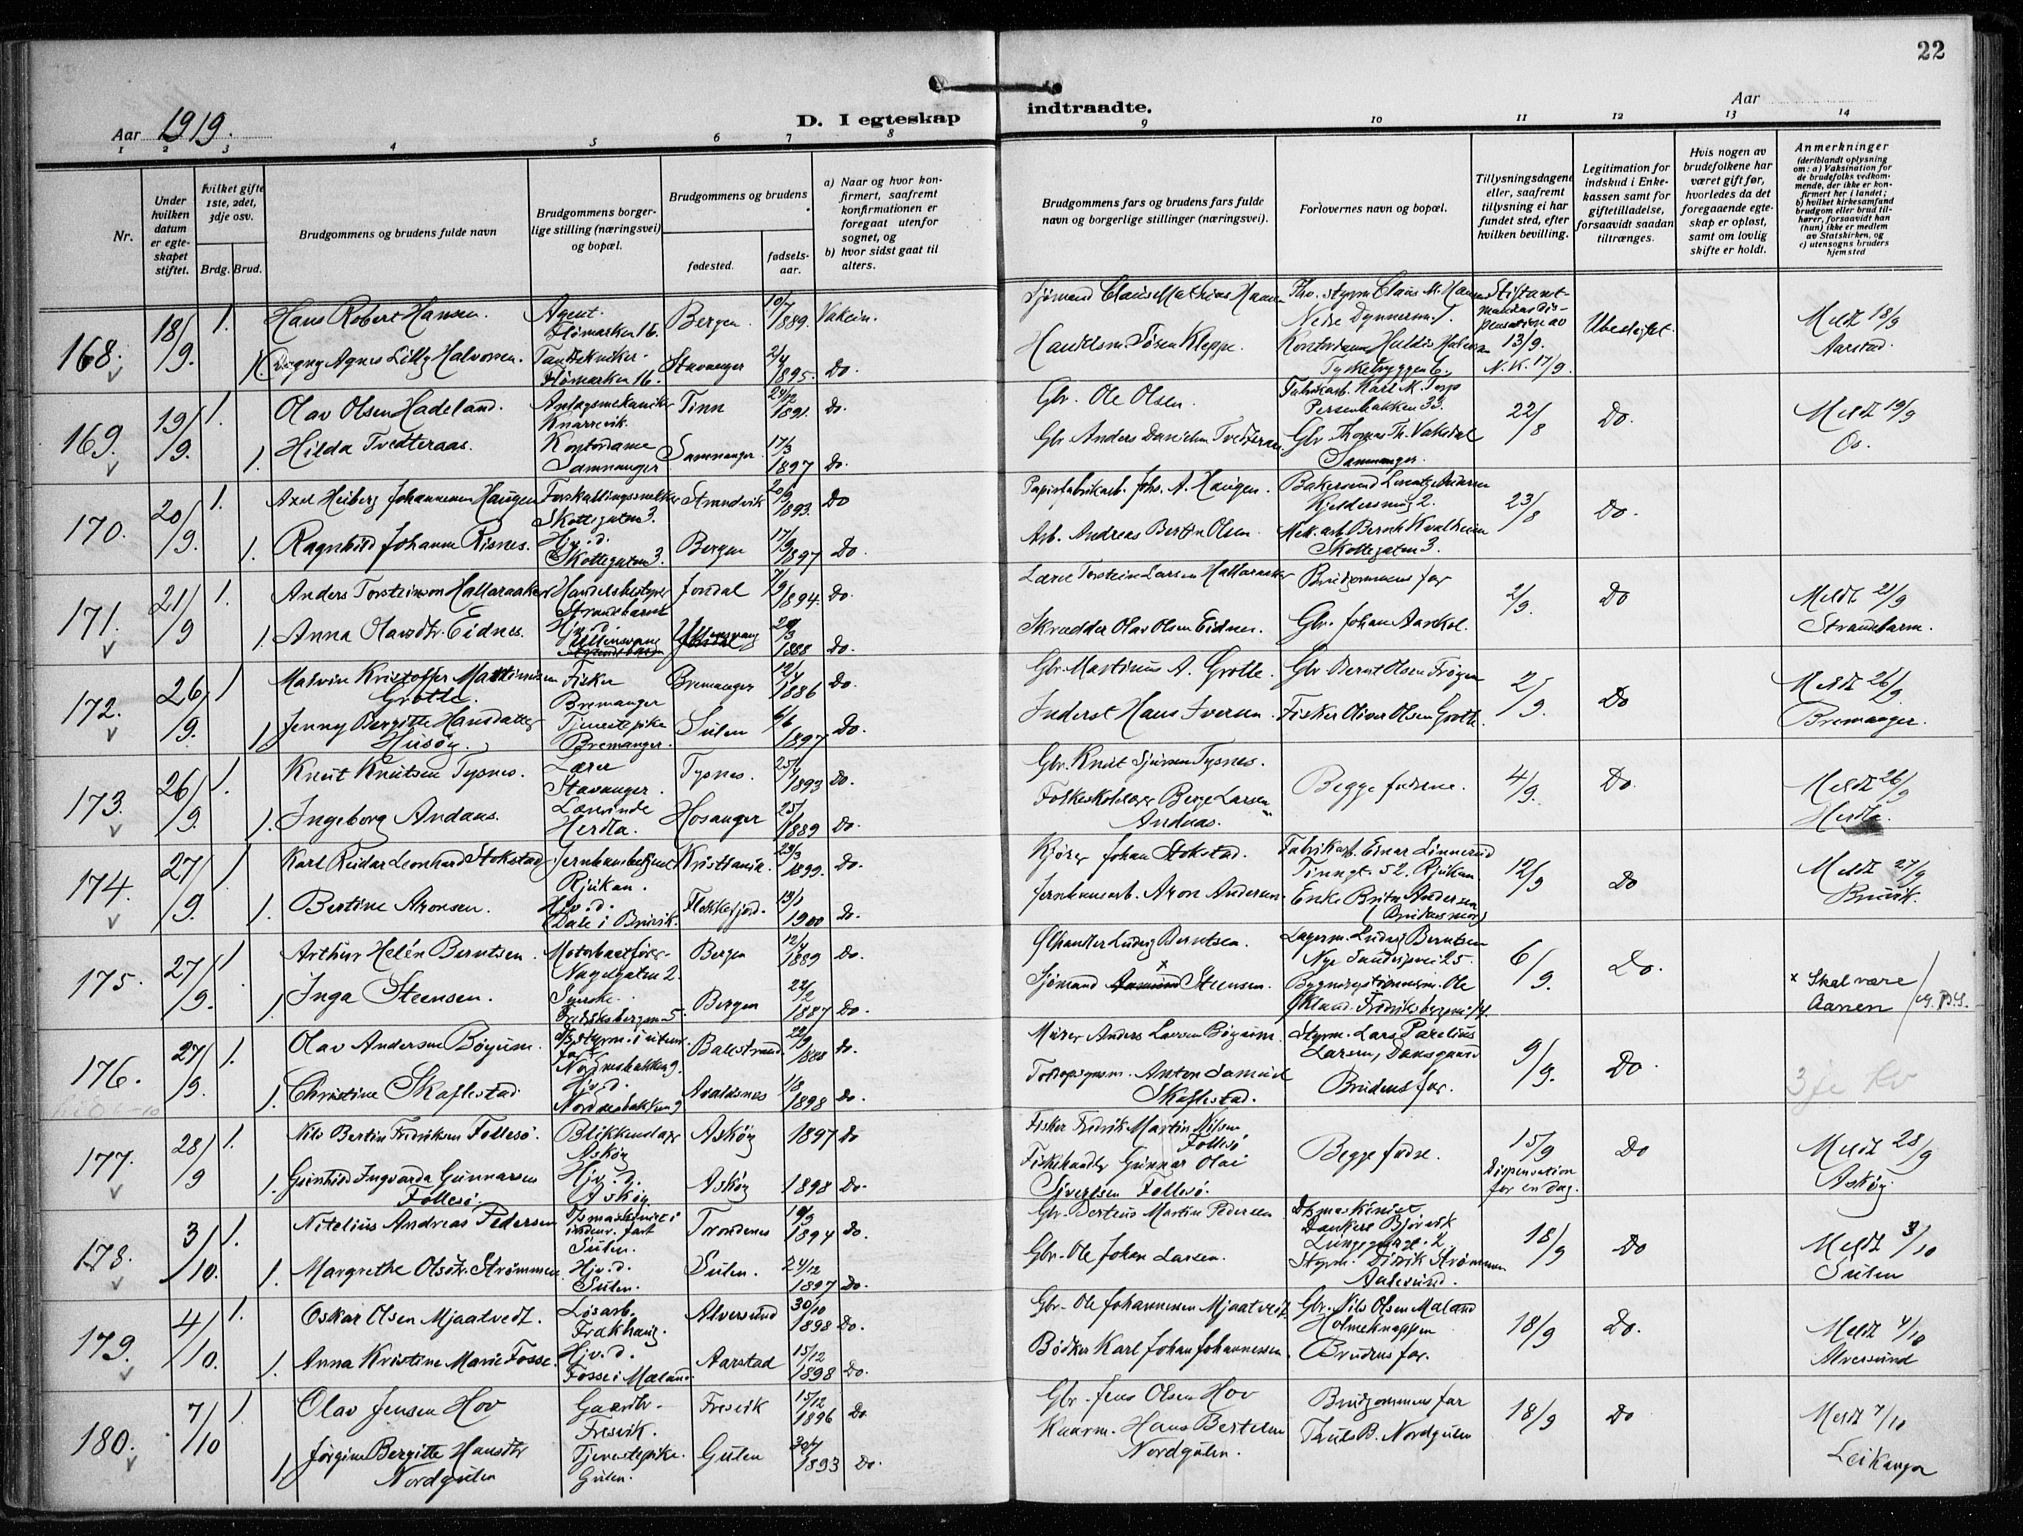 22
Aar 1919.
D. I egteskap indtraadte.
Aar
1 2 3 4 5 6 7 8 9 10 11 12 13 14
Nr.
Under hvilken datum er egteskapet stiftet.
hvilket gifte 1ste, 2det, 3dje osv.
Brdg. Brud.
Brudgommens og brudens fulde navn
Brudgommens borgerlige stilling (næringsvei) og bopæl.
Brudgommens og brudens
fødested.
fødselsaar.
a) Naar og hvor konfirmert, saafremt konfirmationen er foregaat utenfor sognet, og
b) hvor sidst gaat til alters.
Brudgommens fars og brudens fars fulde navn og borgerlige stillinger (næringsvei).
Forlovernes navn og bopæl.
Tillysningsdagene eller, saafremt tillysning ei har fundet sted, efter hvilken bevilling.
Legitimation for indskud i Enkekassen samt for giftetilladelse, forsaavidt saadan tiltrænges.
Hvis nogen av brudefolkene har været gift før, hvorledes da det foregaaende egteskap er opløst, samt om lovlig skifte er holdt.
Anmerkninger
(deriblandt oplysning om: a) Vaksination for de brudefolks vedkommende, der ikke er konfirmert her i landet; b) hvilket kirkesamfund brudgom eller brud tilhører, forsaavidt han (hun) ikke er medlem av Statskirken, og c) utensogns bruders hjemsted
168. 18/9. 1. Hans Robert Hansen. Agent. Flømarken 16. Bergen. 10/7 1889. Sjømand Claus Mathias Stiftamt- Ubeslyttet. Meldt 18/9 Aarstad.
1. Agnes Lilly Halvorsen. Flømarken 16. Stavanger 2/4 1895. Do. Kleppe. Tyskebryggen 6. 13/9. N.K. 17/9.
169. 19/9. 1. Olav Olsen Hadeland. Knarrevik. Tinn 24/12 1891. Do. Gbr. Ole Olsen. Fabrikarb. Karl M. Torp Persenbakken 33. 22/8 Do. Meldt 19/9 Os.
1. Hilda Tvedteraas. Kontordame Samnanger Samnanger 17/3 1897 Do. Gbr Anders Danielsen Gbr Thomas Th. Vaksdal Samnanger.
170. 20/9. 1. Axel Heiberg Johannesen Haugen Skottegaten 3. Strandvik 20/9 1893. Do Papirfabrikarb. Johs. A. Haugen. 23/8 Do.
1. Ragnhild Johanne Risnes. Hjv. d. Skottegaten 3. Bergen 17/9 1897 Do. Arb. Andreas Bertin Olsen. Mek. arb Bernh. Kvalheim Skottegaten 3.
171. 21/9 1. Anders Torsteinson Hallaraaker Handelsbestyrer Strandebarm Jondal 7/9 1894. Do. Lærer Torstein Larsen Hallaraaker Brudgommens far 2/9. Do Meldt 21/9 Strandebarm.
1. Anna Olavsdtr. Eidnes. Hjv. d. Ullensvang Ullensvang 20/3 1888 Do. Skrædder Olav Olsen Eidnes. Gbr. Johan Aarhol.
172. 26/9. 1 Malvin Kristoffer Martinusen Grotle. Fisker Bremanger Bremanger 12/4 1886 Do. Gbr. Martinus A. Grotle. Gbr Bernt Olsen Frøyen 2/9. Do Meldt 26/9 Bremanger.
1 Jenny Bergitte Hansdatter Husøy. Tjenestepike Bremanger. Sulen 6/6 1897 Do. Inderst Hans Iversen. Fisker Oliver Olsen Grotle.
173. 26/9. 1. Knut Knutsen Tysnes. Lærer Stavanger. Tysnes. 25/4 1893 Do. Gbr. Knut Sjursen Tysnes. Begge fædrene. 4/9. Do Meldt 26/9 Herdla.
1. Ingeborg Andaas. Lærerinde Herdla. Hosanger 25/1 1889 Do. Folkeskolelærer Berge Larsen Andaas.
174. 27/9. 1 Karl Reidar Leonhard Stokstad Jernbanebetjent Rjukan. Kristiania. 29/3 1899. Do. Kjører Johan Stokstad. Fabrikarb. Einar Linnerud Tinngt. 52. Rjukan 12/9 Do Meldt 27/9 Bruvik.
1. Bertine Aronsen. Hjv. d. Dale i Bruvik. Flekkefjord. 13/1 1900 Do. Jernbanearb. Aron Andersen Enke Brita Andersen (Brudens mor)
175. 27/9. 1 Arthur Helén Berntsen. Motorbaatfører. Nagelgaten 2. Bergen 12/4 1889 Do. Ludvig Berntsen. Lagerm. Ludvig Berntsen Nye Sandviksvei 25. 6/9. Do. x Skal være Aanen
1 Inga Steensen. Syerske. Fredriksbergsm 5. Bergen 22/2 1887 Do. Sjømand Aamund x Steensen. Ole Økland. Fredriksbergsm. 14.
176. 27/9. 1. Olav Andersen Bøyum. Nordnesbakken 9. Balestrand 22/9 1888 Do. Murer Anders Larsen Bøyum. Styrm. Lars Parelius Larsen, Damsgaard 9/9. Do. 3je kv
1. Christine Skaflestad Hjv. d. Nordnesbakken 9 Avaldsnes 1/8 1898 Do. Anton Samuel Skaflestad. Brudens far.
177. 28/9 1. Nils Bertin Fredriksen Follesø. Blikkenslager Askøy Askøy 1897 Do Fisker Fredrik Martin Nilsen Follesø Begge fædre. 15/9 Dispensation for en dag. Do Meldt 28/9 Askøy.
1. Gunhild Ingvarda Gunnarsen Follesø. Hjv. d. Askøy Askøy 1898 Do. Fiskehandler Gunnar Olai Sivertsen Follesø.
178. 3/10. 1. Nitelius Andreas Pedersen D/Smaskinist i indenr. fart Sulen. Trondenes 10/3 1894 Do. Gbr Berteus Martin Pedersen D/Smaskinist Dankert Bjørvik 18/9 Do Meldt 3/10 Sulen
1. Margrethe Olsdtr. Strømmen. Hjv. d. Sulen. Sulen. 24/12 1897 Do. Gbr. Ole Johan Larsen. Styrm. Didrik Strømmen Aalesund.
179. 4/10. 1. Oskar Olsen Mjaatvedt. Løsarb. Frekhaug. Alversund 30/10 1898 Do. Gbr. Ole Johannessen Mjaatvedt Gbr. Nils Olsen Mæland Holmeknappen 18/9 Do. Meldt 4/10 Alversund
1. Anna Kristine Marie Fosse. Hjv. d. Fosse i Mæland Aarstad 15/12 1898 Do. Bødker Karl Johan Johannessen. Brudens far.
180. 7/10 1 Olav Jensen Hov Gaardbr. Fresvik. Fresvik 15/12 1896 Do. Gbr. Jens Olsen Hov Brudgommens far 18/9 Do Meldt 7/10 Leikanger
1 Jørgine Bergitte Hansdtr Nordgulen Tjenestepike. Gulen. Gulen 30/7 1893 Do. Husm. Hans Bertelsen Nordgulen. Truls B. Nordgulen